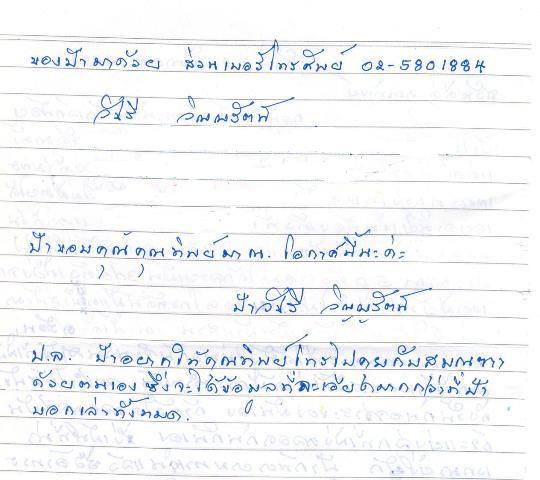 ของป้ามาด้วย ส่วนเบอร์โทรศัพย์ 02-5801884
วันรี
ป้าขอบคุณคุณทิพย์มา ณ. โอกาศนี้นะค่ะ
ป้าวันรี
ป.ล. ป้าอยากให้คุณทิพย์โทรไปคุยกับ
ด้วยตนเอง ซึ่งจะได้ข้อมูลที่ละเอียดมากกว่าที่ป้า
บอกเล่าทั้งหมด.